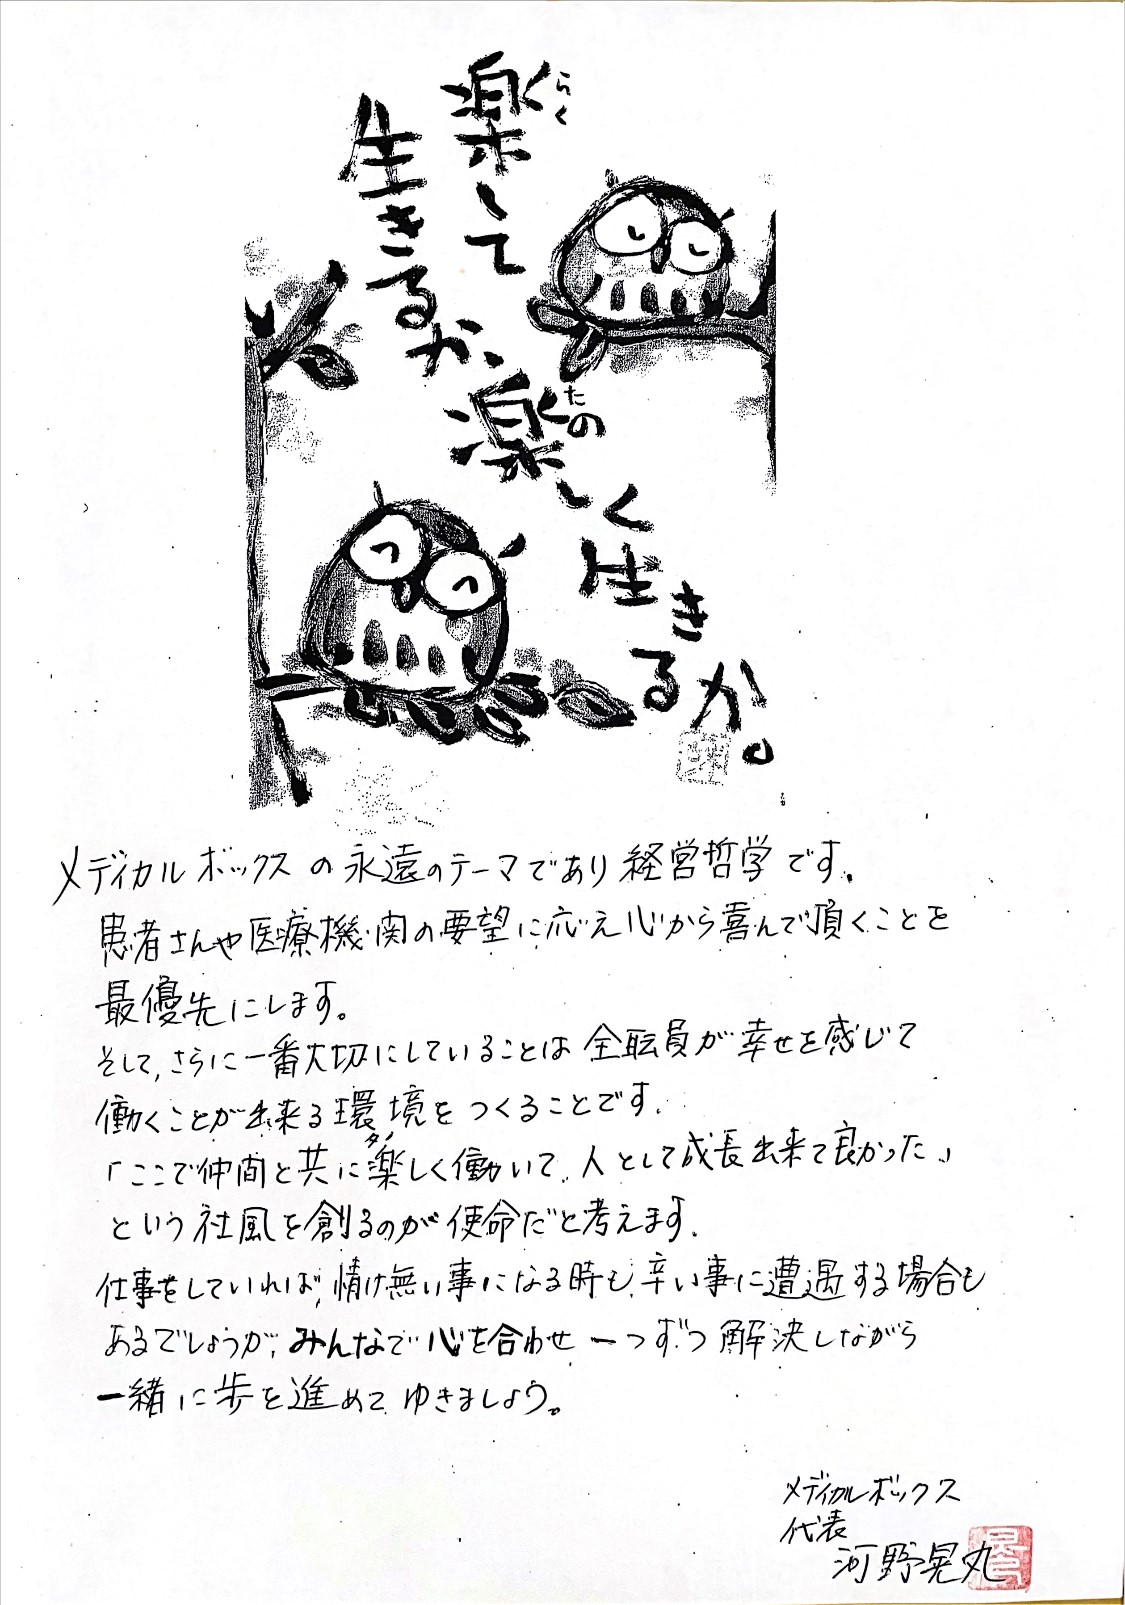 楽して
らく
生きるか、
楽しく
たの
生きるか。
メディカルボックスの永遠のテーマであり経営哲学です。
患者さんや医療機関の要望に応え心から喜んで頂くことを
最優先にします。
そして、さらに一番大切にしていることは全職員が幸せを感じて
働くことが出来る環境をつくることです。
「ここで仲間と共に楽しく働いて、人として成長出来て良かった」
タノ
という社風を創るのが使命だと考えます。
仕事をしていれば、情け無い事になる時も、辛い事に遭遇する場合も
あるでしょうが、みんなで心を合わせ一つずつ解決しながら
一緒に歩を進めてゆきましょう。
メディカルボックス
代表
河野晃丸